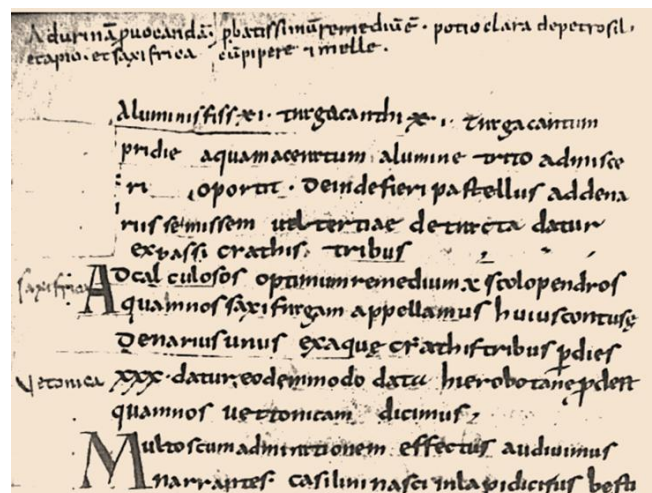 Adurinā puocandā: pbatissimū remediū ē · potio clara depetrosil,
etapio · etsaxifrica cū pipere & melle .
aluminis fissȩ xi · tragacanthi x · i · tragacantum
pridie aquamaceratum alumine trito admisce
ri oportit · Deindefieri pastellus addena
rius semissem uel tertiae detracta datur
expassi crathis, tribus
saxifrica Adcalculosos optimumremedium x scolopendros
quamnossaxifragam appellamus huiuscontusȩ
Denariusunus exaquȩ crathistribus pdies
Vetonica xxx · datur, eodemmodo data hierobotane pdest
quamnos uettonicam dicimus,
Multoscumadmirationem effectus audiuimus
narrantes · casilininasci inlapidicinis besti